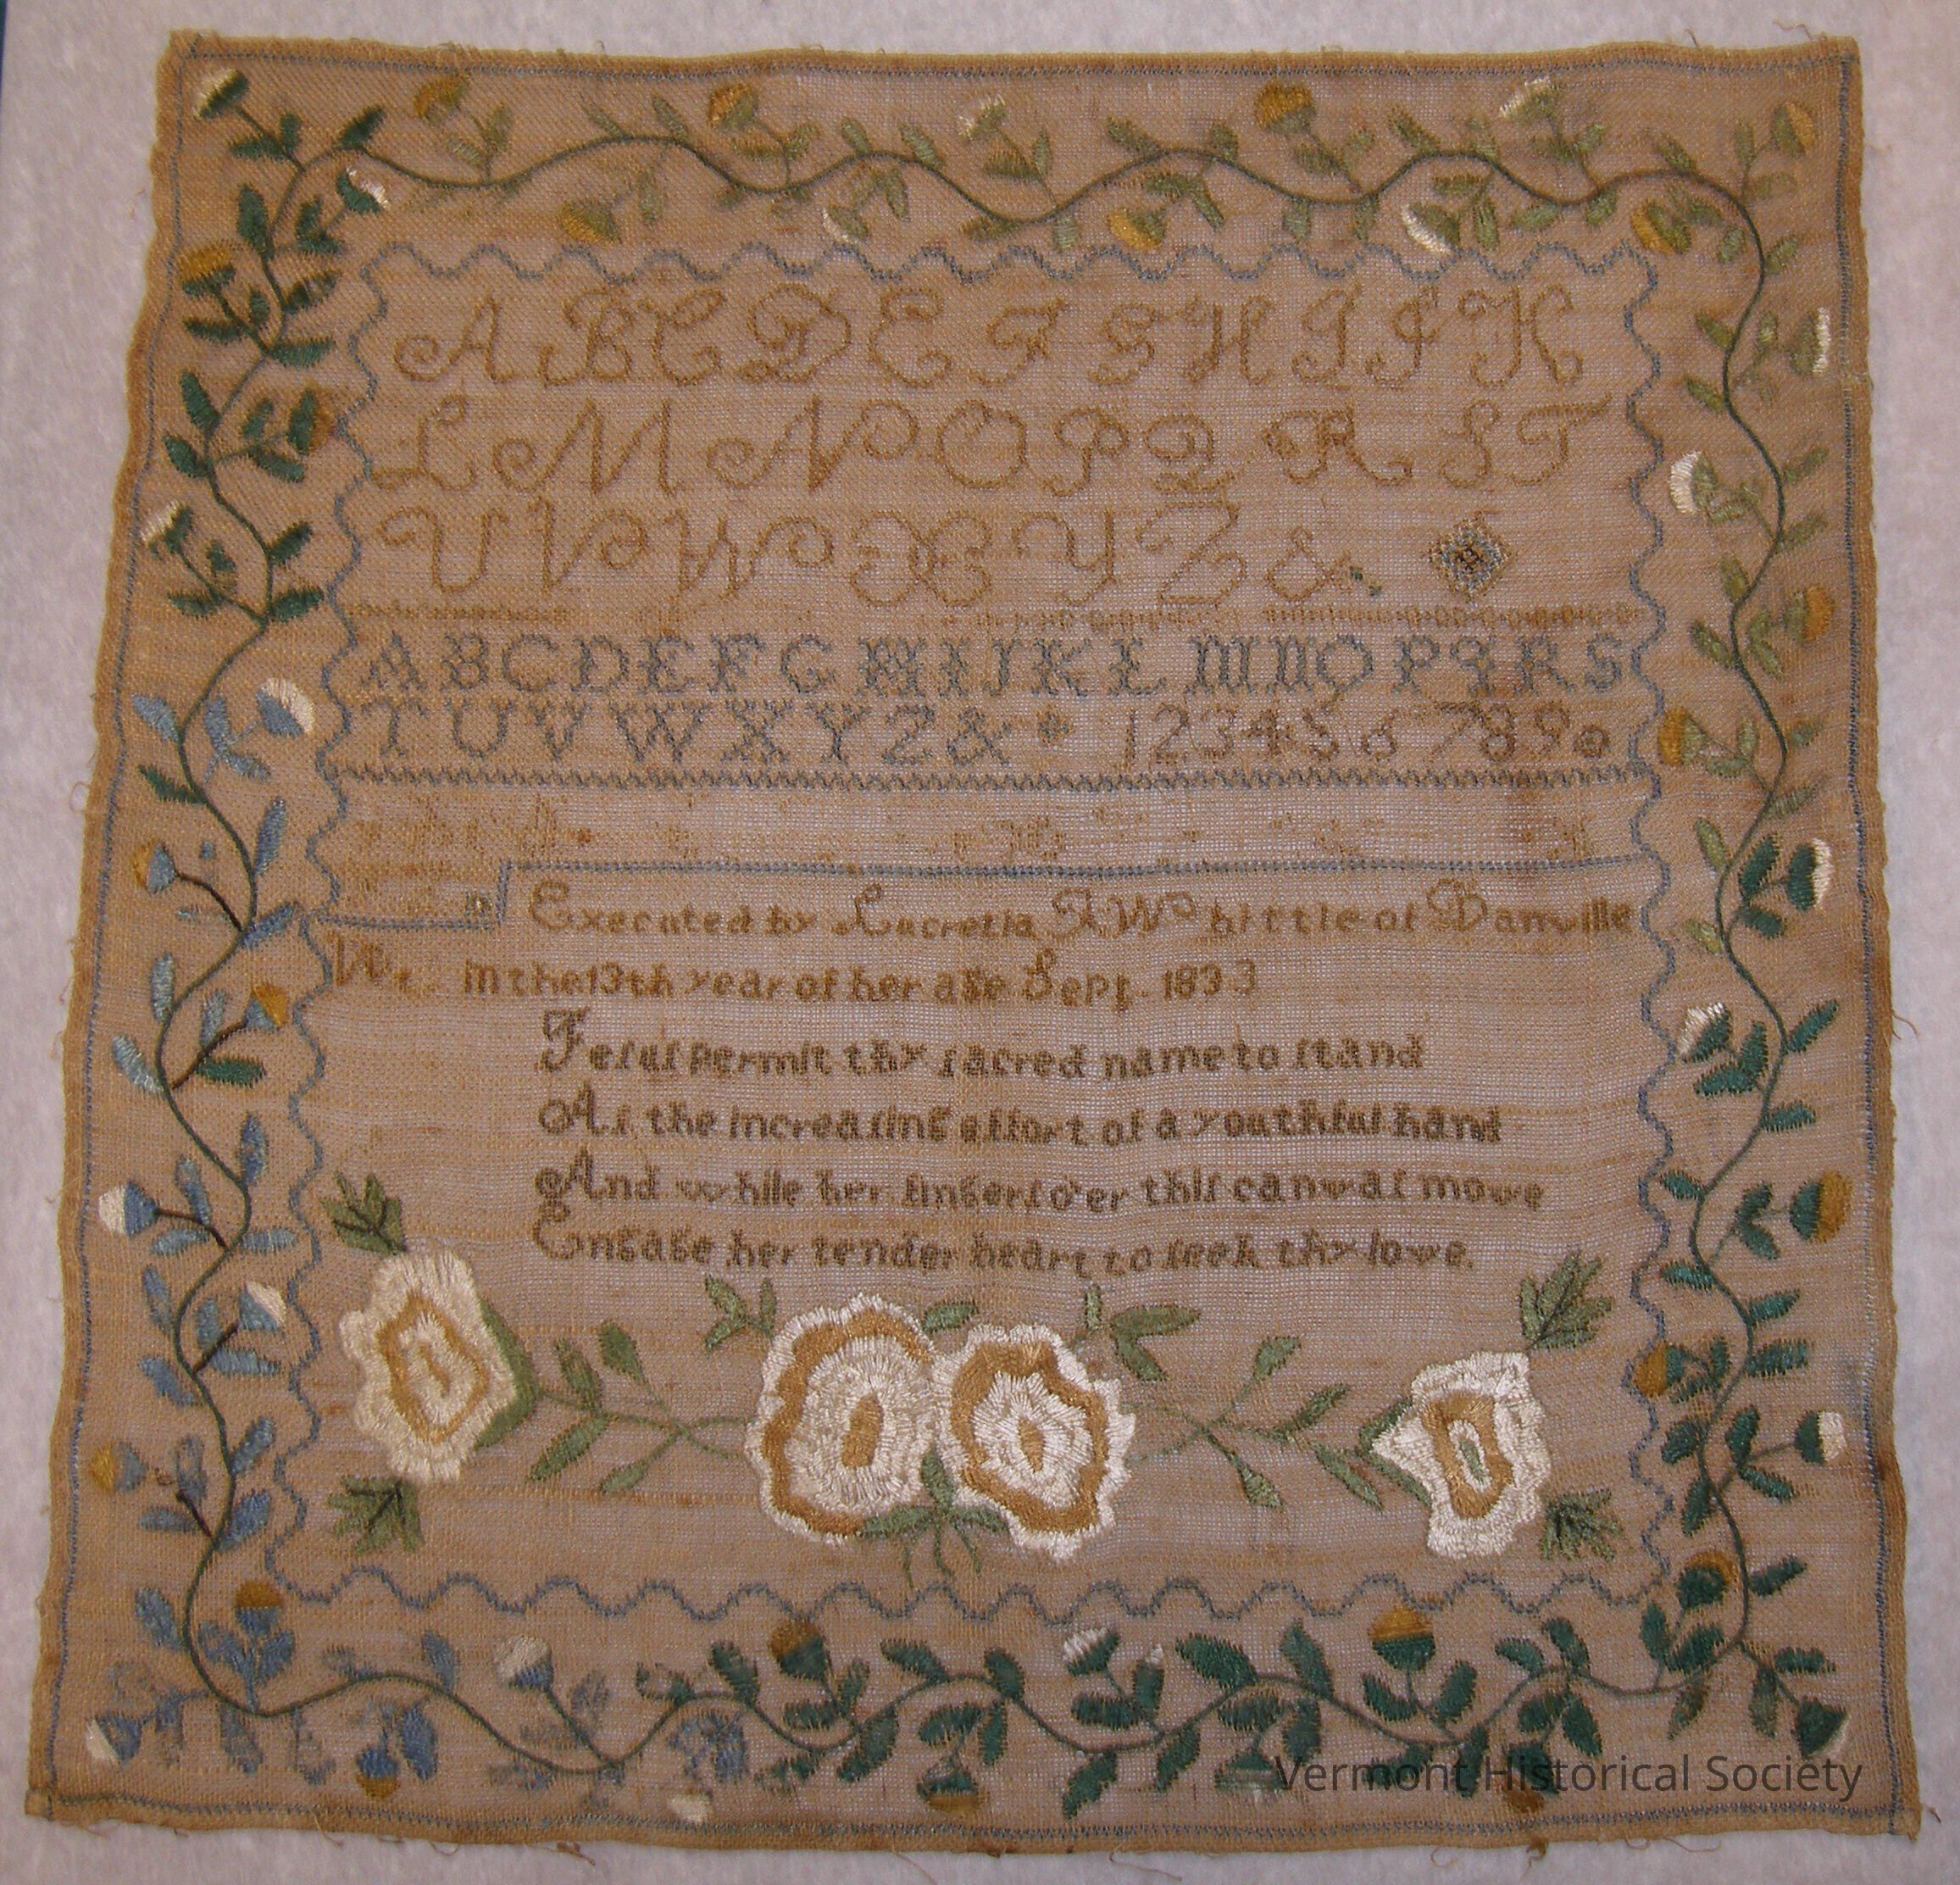 A B C D E F G H I J K
L M N O P Q R S T
U V W X Y Z &
A B C D E F G H I J K L M N O P q R S
T U V W X Y Z & 1 2 3 4 5 6 7 8 9 0
Executed by Lucretia A Whittle of Danville
Vt. in the 13th year of her age Sept. 1833
Jeſuſ permit thy ſacred name to ſtand
Aſ the increaſing effort of a youthful hand
And while her fingerſ o'er thiſ canvaſ move
Engage her tender heart to ſeek thy love.
Vermont Historical Society